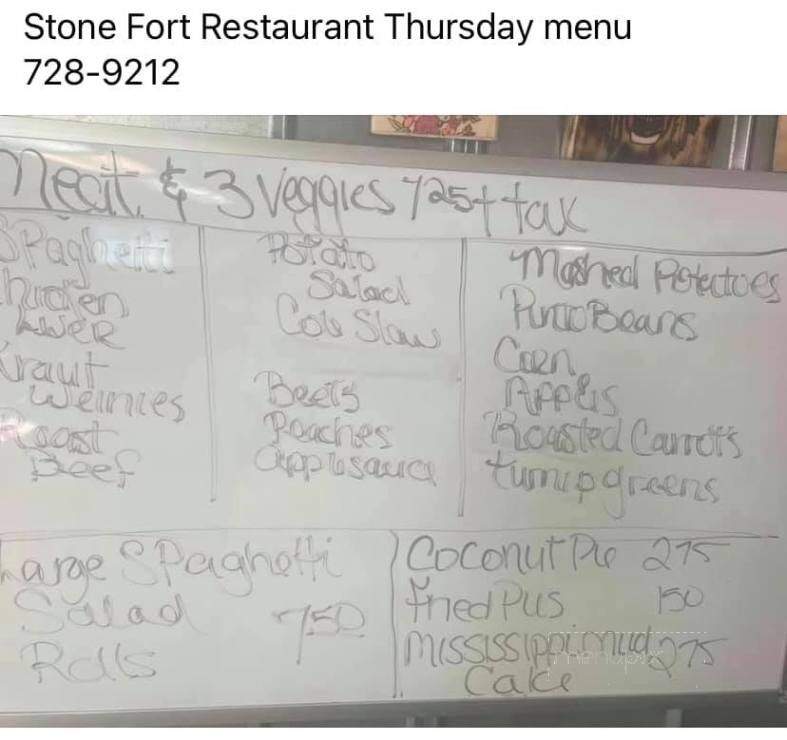 Stone Fort Restaurant Thursday menu
728-9212
Meat & 3 Veggies 725 + tax
Spaghetti
Chicken
Liver
Kraut
Weinnies
Roast
Beef
Potato
Salad
Cole Slaw
Beets
Peaches
applesauce
Mashed Potatoes
Pinto Beans
Corn
Apples
Roasted Carrots
turnip greens
Large Spaghetti
Salad 750
Rolls
Coconut Pie 275
Fried Pies 150
Mississippi mud 275
Cake
menupix